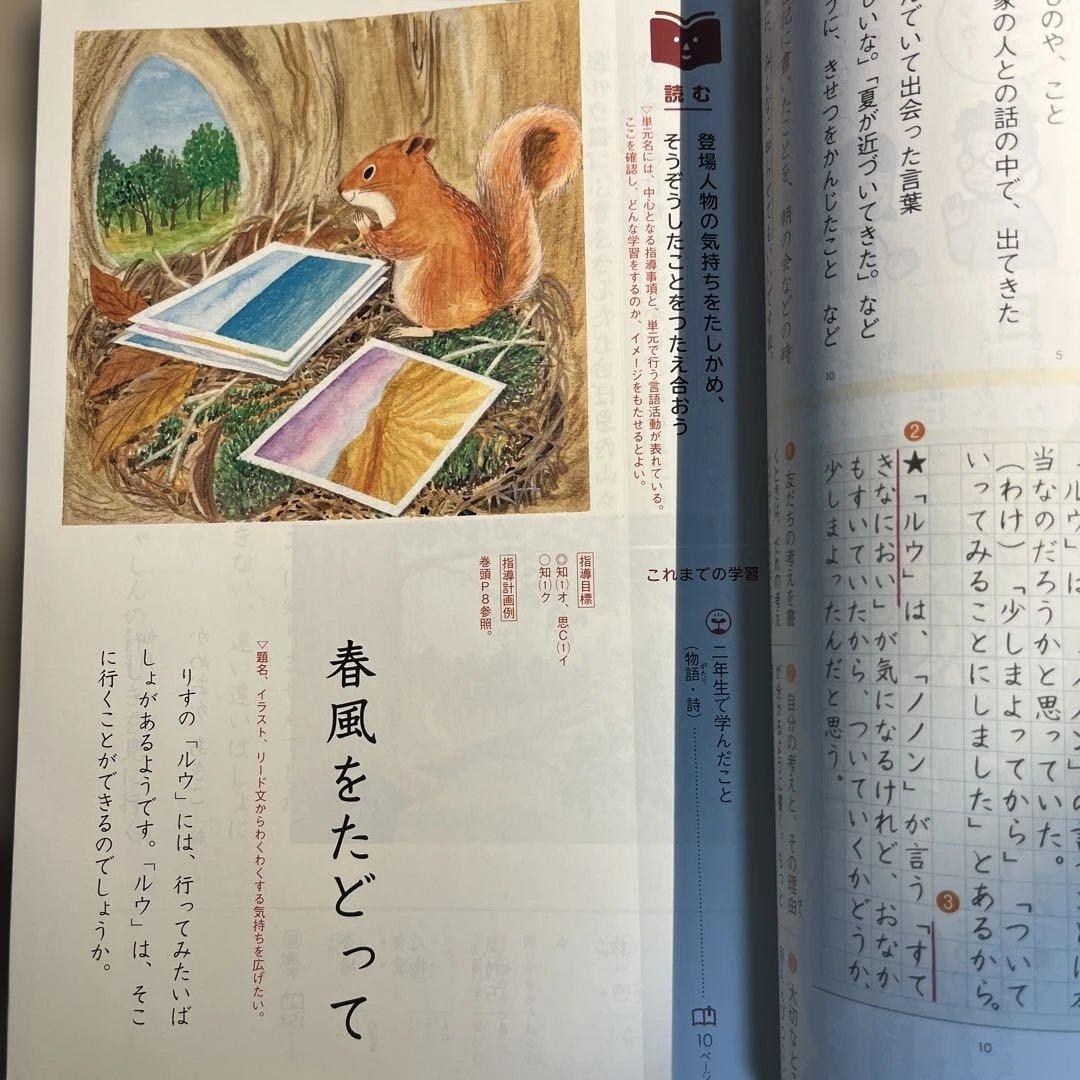 のや、こと
家の人との話の中で、出てきた
んでいて出会った言葉
しいな。」「夏が近づいてきた。」など
うに、きせつをかんじたこと など
5
10
当なのだろうかと思っていた。
(わけ)「少しまよってから」「ついて
いってみることにしました」とあるから。
❷
★「ルウ」は、「ノノン」が言う「すて
きなにおい」が気になるけれど、おなか
もすいていたから、ついていくかどうか、
少しまよったんだと思う。
❸
10
❶ 友だちの考えを書
くときは、だれの考え
❷ 自分の考えと、その理由
が分かるように書く。もっと
❸ 大切なと
読む
登場人物の気持ちをたしかめ、
そうぞうしたことをつたえ合おう
▽単元名には、中心となる指導事項と、単元で行う言語活動が表れている。
ここを確認し、どんな学習をするのか、イメージをもたせるとよい。
これまでの学習
二年生で学んだこと
(物語・詩)
がたり
10ページ
指導目標
◎知⑴オ、思C⑴イ
○知⑴ク
指導計画例
巻頭P8参照。
春風をたどって
▽題名、イラスト、リード文からわくわくする気持ちを広げたい。
りすの「ルウ」には、行ってみたいば
しょがあるようです。「ルウ」は、そこ
に行くことができるのでしょうか。